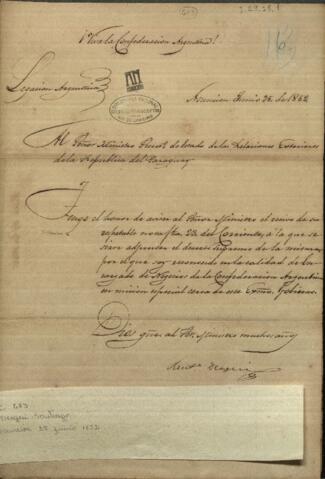 ¡Viva la Confederacion Argentina!
Legacion Argentina
Asuncion Junio 26 de 1852
Al Señor Ministro Secret. de Estado de las Relaciones Exteriores
de la Republica del Paraguay
Tengo el honor de avisar al Señor Ministro el recivo de su
respetable nota fha. 23 del Corriente, a la que se
sirve adjuntar el decreto Supremo de la misma
por el que soy reconocido en la calidad de En-
cargado de Negocios de la Confederacion Argentina
en mision especial cerca de este Exmo. Gobierno.
Dios gue. al Sor. Ministro muchos años
Derqui
Derqui, Santiago
junio 1852